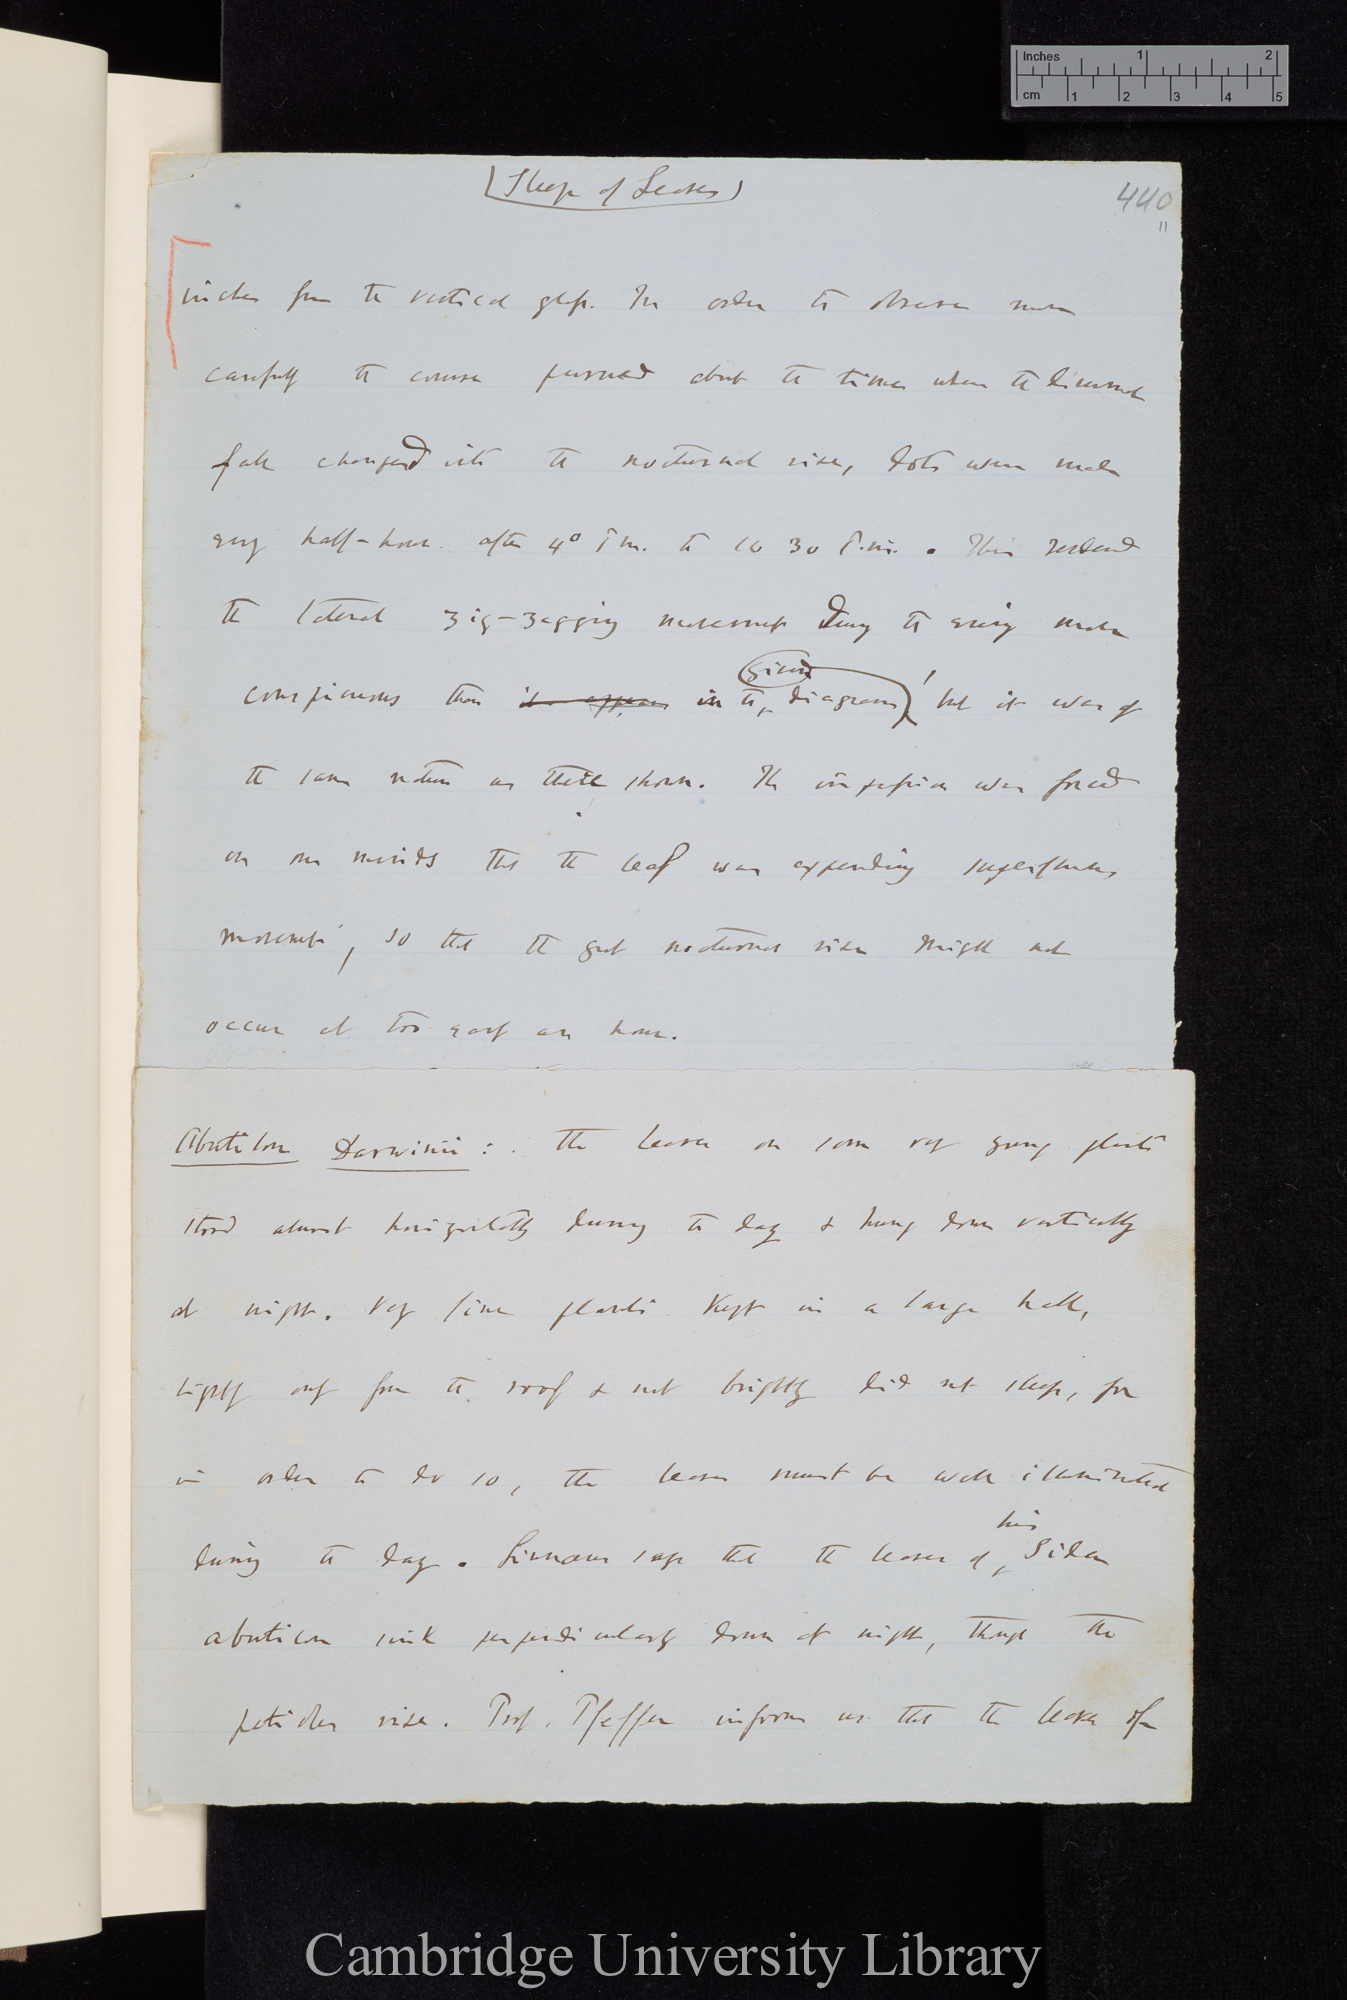 inches
1
2
cm
1
2
3
4
5
(Sleep of Leaves)
440
11
inches from the vertical glass. In order to observe more
carefully the course pursued about the time when the diurnal
fall changed into the nocturnal rise, dots were made
every half-hour after 4° P.m. to 10 30 P.m. This rendered
the lateral zig-zagging movement during the evening more
conspicuous than is apparent in the given diagram, but it was of
the same nature as there shown. The impression was forced
on our minds that the leaf was expending superfluous
movement, so that the great nocturnal rise might not
occur at too early an hour.
Abutilon Darwinii: The leaves on some very young plants
stood almost horizontally during the day & hung down vertically
at night. Very fine plants kept in a large hall,
lighted only from the roof & not brightly did not sleep, for
in order to do so, the leaves must be well illuminated
during the day. Linnaeus says that the leaves of his Sida
abutilon sink perpendicularly down at night, though the
petioles rise. Prof. Pfeffer informs us that the leaves of a
Cambridge University Library